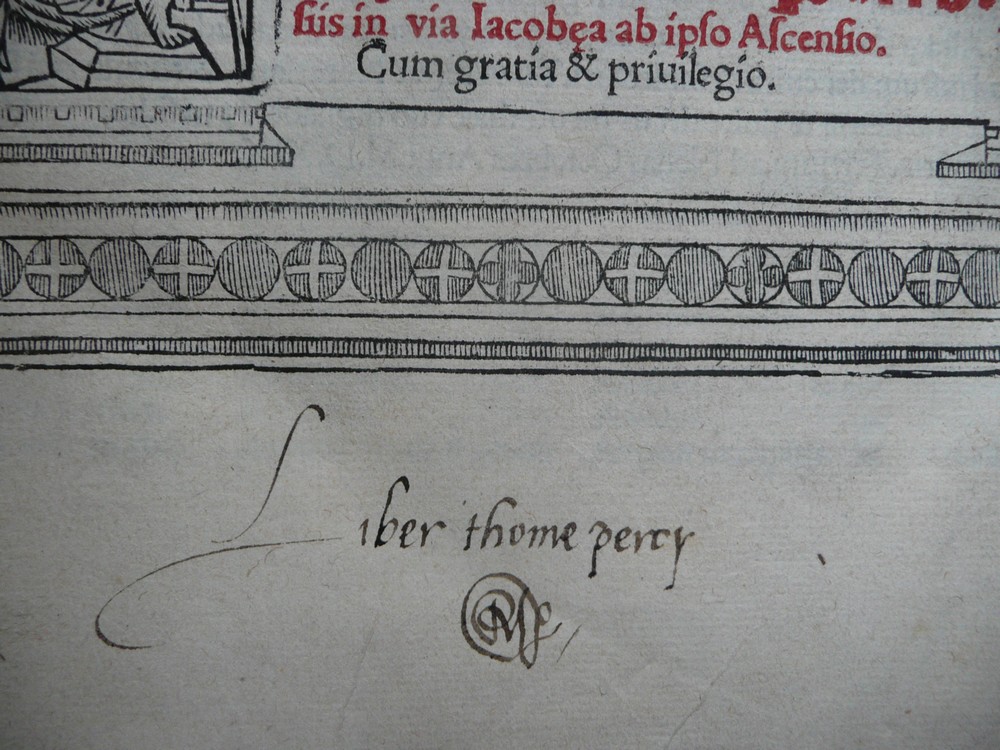 siis in via Iacobęa ab ipso Ascensio.
Cum gratia & priuilegio.
Liber thome percy